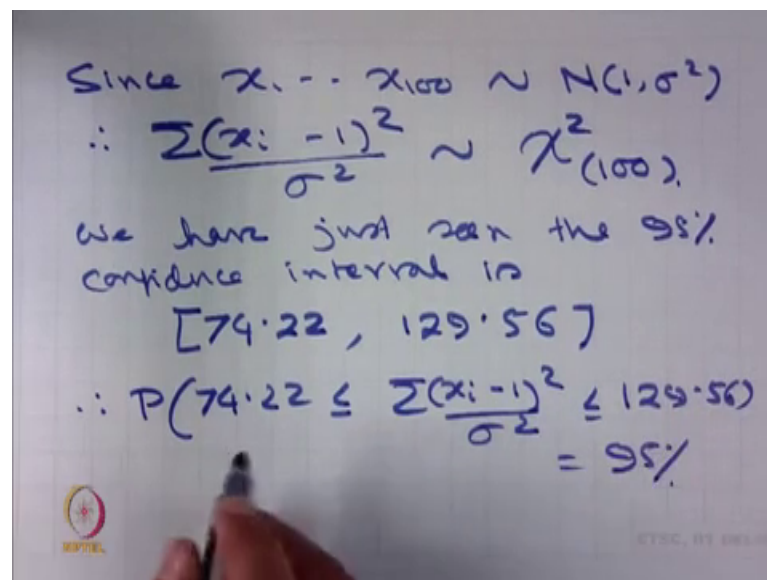 Since x₁ -- x₁₀₀ ~ N(1, σ²)
∴ Σ(xᵢ - 1)² / σ² ~ χ²(100).
we have just seen the 95%
confidence interval is
[74.22, 129.56]
∴ P(74.22 ≤ Σ(xᵢ - 1)² / σ² ≤ 129.56)
= 95%
NPTEL
ETSC, IIT DELHI